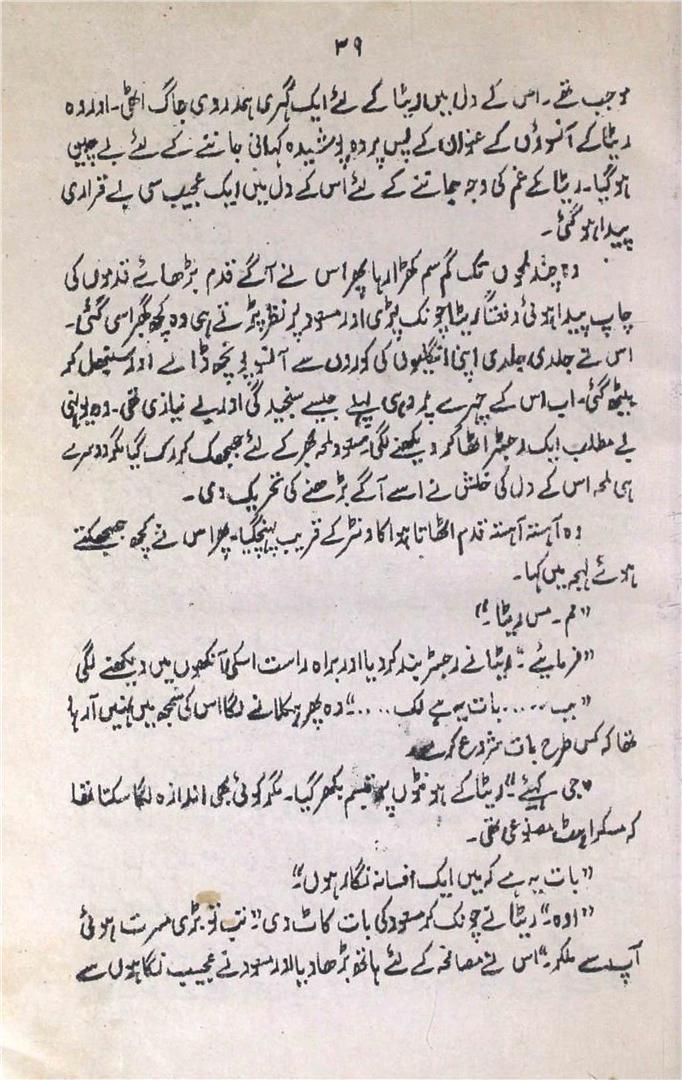 ۳۹
موجب تھے۔ اس کے دل میں ریٹا کے لئے ایک گہری ہمدردی جاگ اٹھی۔ اور وہ
ریٹا کے آنسوؤں کے عنوان کے پس پردہ پوشیدہ کہانی جاننے کے لئے بے چین
ہو گیا۔ ریٹا کے غم کی وجہ جاننے کے لئے اس کے دل میں ایک عجیب سی بے قراری
پیدا ہو گئی۔
وہ چند لمحوں تک گم سم کھڑا رہا پھر اس نے آگے قدم بڑھائے قدموں کی
چاپ پیدا ہوئی دفعتاً ریٹا چونک پڑی اور مسعود پر نظر پڑتے ہی وہ کچھ گھبرا سی گئی۔
اس نے جلدی جلدی اپنی انگلیوں کی کوروں سے آنسو پونچھ ڈالے اور سنبھل کر
بیٹھ گئی۔ اب اس کے چہرے پر وہی پہلے جیسے سنجیدگی اور بے نیازی تھی۔ وہ یونہی
بے مطلب ایک رجسٹر اٹھا کر دیکھنے لگی۔ مسعود لمحہ بھر کے لئے جھجھک کر رک گیا مگر دوسرے
ہی لمحہ اس کے دل کی خلش نے اسے آگے بڑھنے کی تحریک دی۔
وہ آہستہ آہستہ قدم اٹھاتا ہوا کاونٹر کے قریب پہنچ گیا۔ پھر اس نے کچھ جھجھکتے
ہوئے لہجہ میں کہا۔
"م۔ مس ریٹا۔"
"فرمایئے۔" ریٹا نے رجسٹر بند کر دیا اور براہ راست اسکی آنکھوں میں دیکھنے لگی
"جب..... بات یہ ہے کک....." وہ پھر ہکلانے لگا اس کی سمجھ میں نہیں آ رہا
تھا کہ کس طرح بات شروع کرے۔
"جی کہئے۔" ریٹا کے ہونٹوں پر تبسم بکھر گیا۔ مگر کوئی بھی اندازہ لگا سکتا تھا
کہ مسکراہٹ مصنوعی تھی۔
"بات یہ ہے کہ میں ایک افسانہ نگار ہوں۔"
"اوہ۔" ریٹا نے چونک کر مسعود کی بات کاٹ دی۔ "تب تو بڑی مسرت ہوئی
آپ سے ملکر۔" اس نے مصافحہ کے لئے ہاتھ بڑھا دیا اور مسعود نے عجیب نگاہوں سے